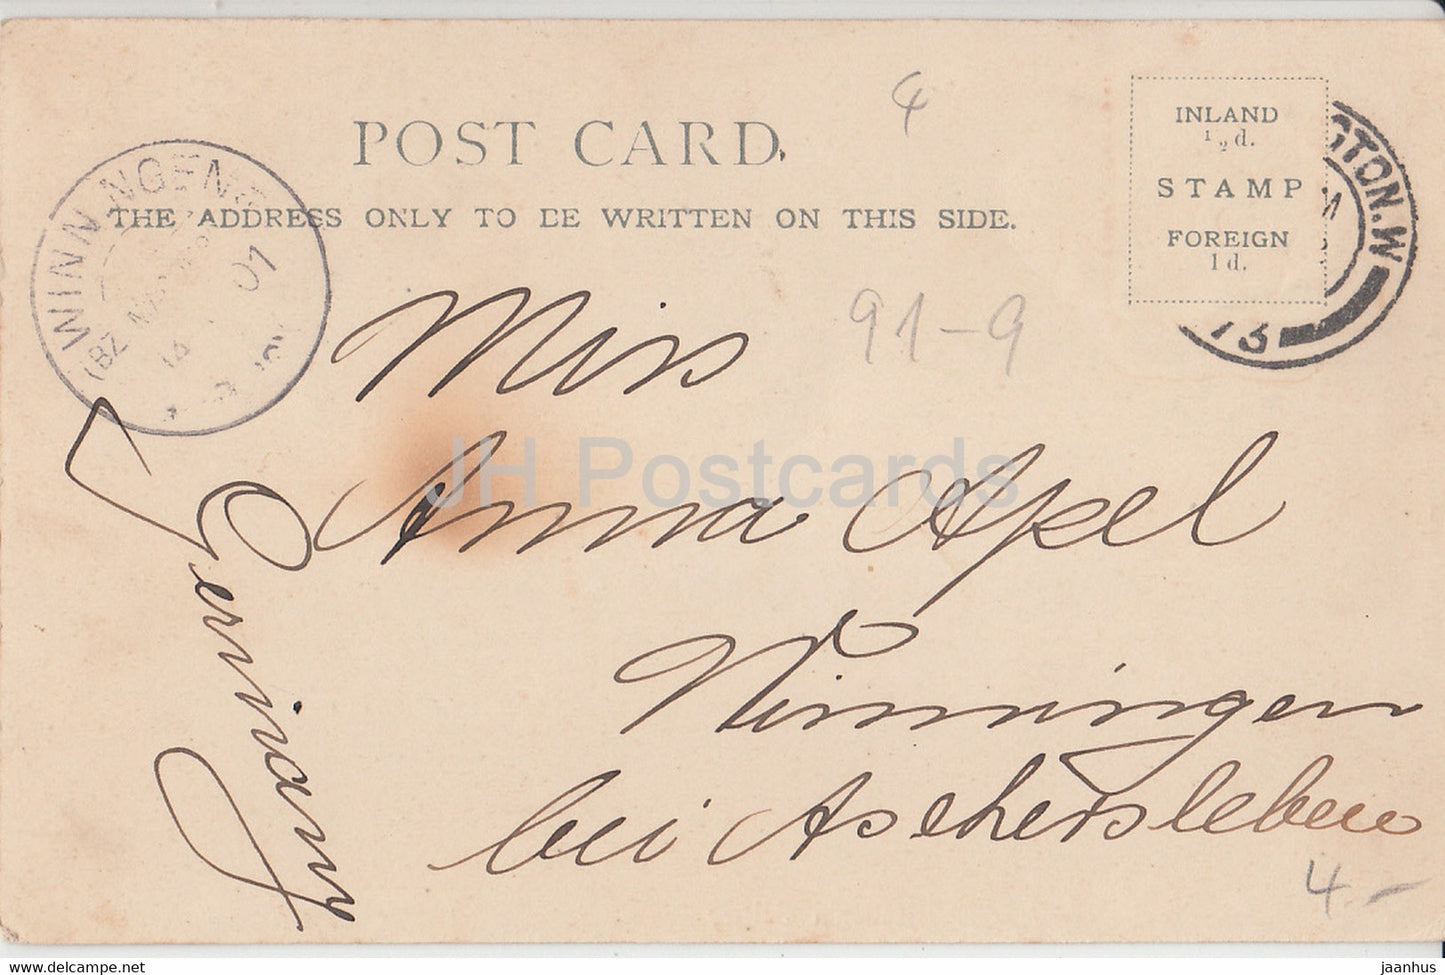 POST CARD.
THE ADDRESS ONLY TO BE WRITTEN ON THIS SIDE.
INLAND
½ d.
STAMP
FOREIGN
1 d.
GTON.W
73
WINNINGEN
(BZ
01
4
91-9
Miss
Anna Apel
Winningen
bei Aschersleben
Germany
4.-
JH Postcards
https://www.delcampe.net
jaanhus